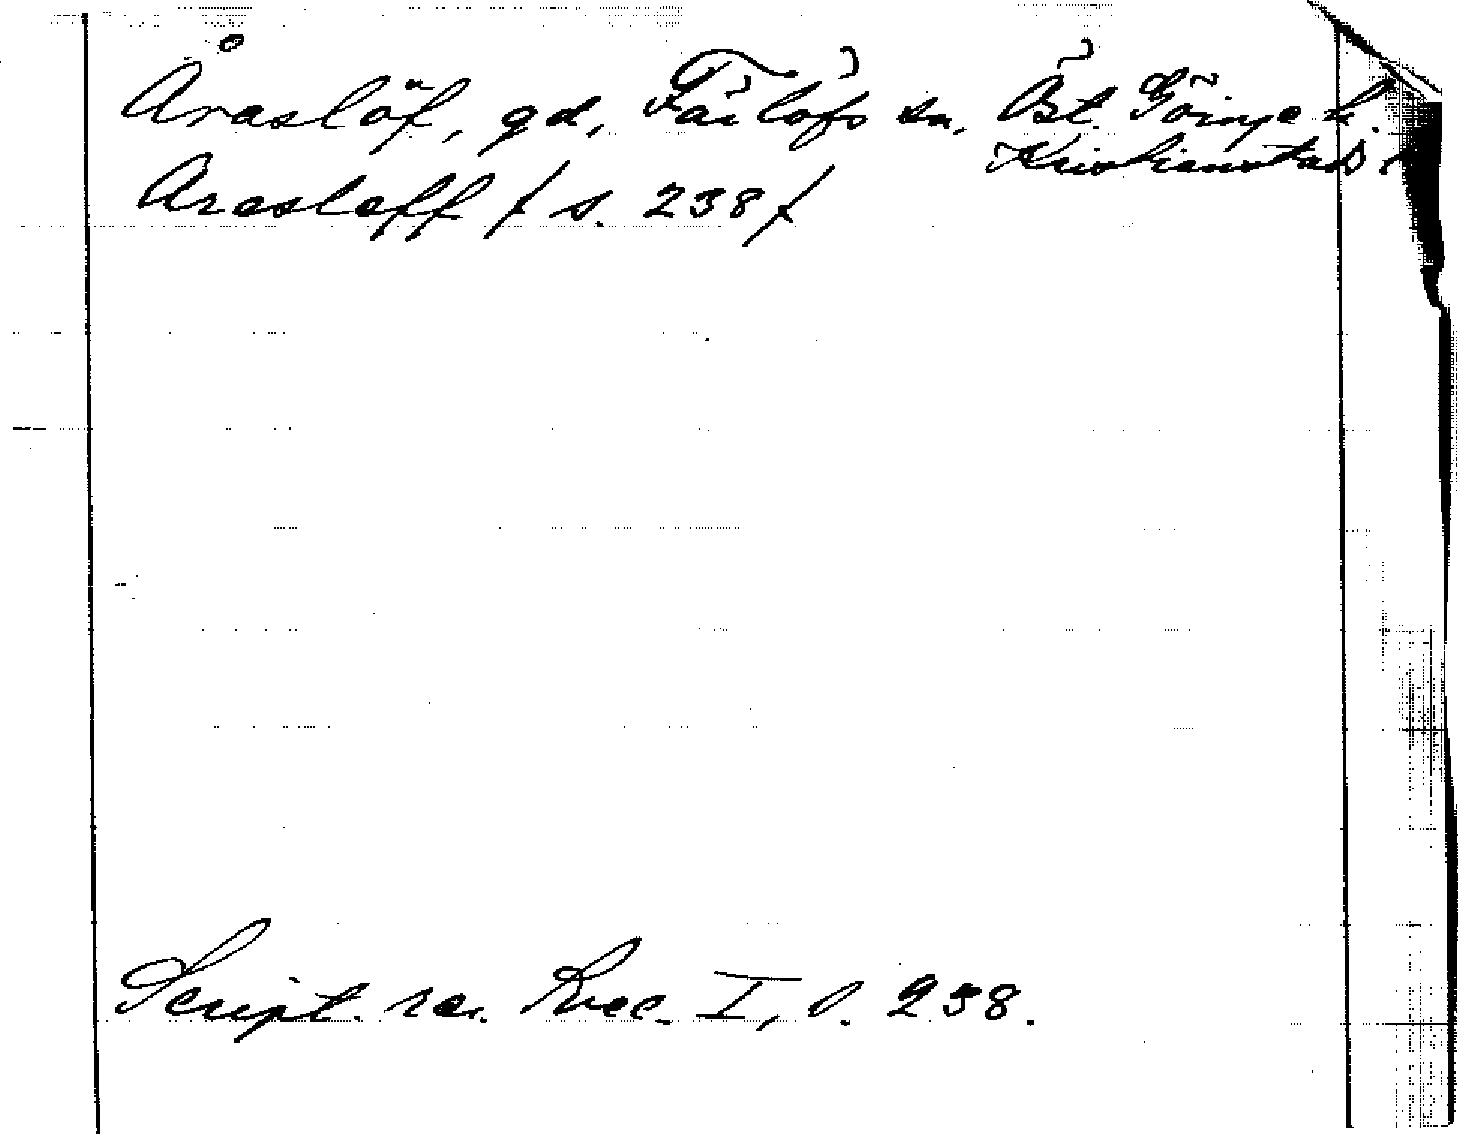 Åraslöf, gd, Färlöfs sn, Öst. Göinge h.
Kristianstads l.
Arasleff / s. 238 /
Script. rer. Svec. I, s. 238.